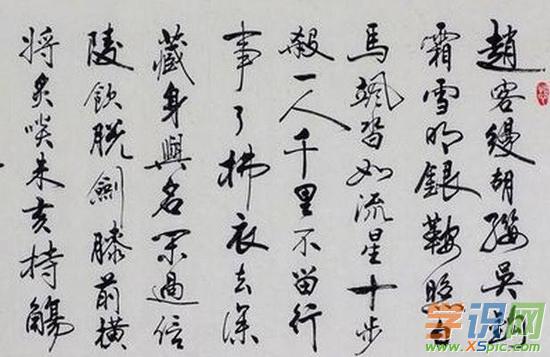 趙客縵胡纓吳鉤
霜雪明銀鞍照白
馬颯沓如流星十步
殺一人千里不留行
事了拂衣去深
藏身與名閑過信
陵飲脫劍膝前橫
將炙啖朱亥持觴
学识网
www.XSpic.com